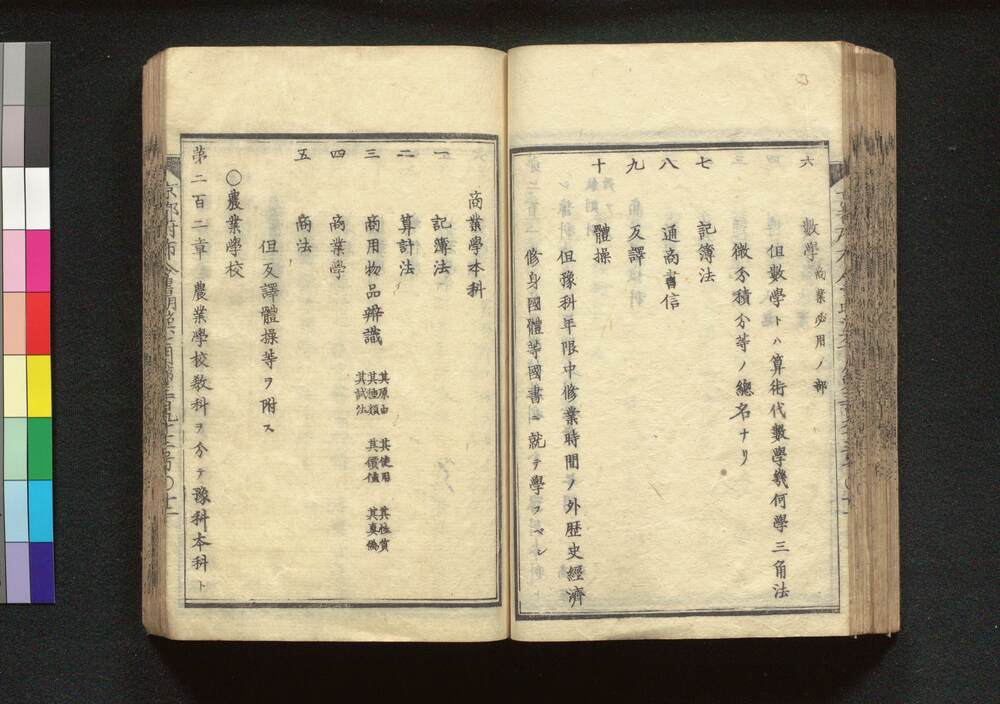 六　數學　商業必用ノ部
但數學トハ算術代數學幾何學三角法
微分積分等ノ總名ナリ
七　記簿法
八　通商書信
九　反譯
十　體操
但豫科年限中修業時間ノ外歴史經濟
修身國體等國書ニ就テ學フベシ
商業學本科
一　記簿法
二　算計法
三　商用物品辨識　其原由　其種類　其試法　其使用　其價値　其性質　其真僞
四　商業學
五　商法
但反譯體操等ヲ附ス
○農業學校
第二百二章　農業學校敎科ヲ分テ豫科本科ト